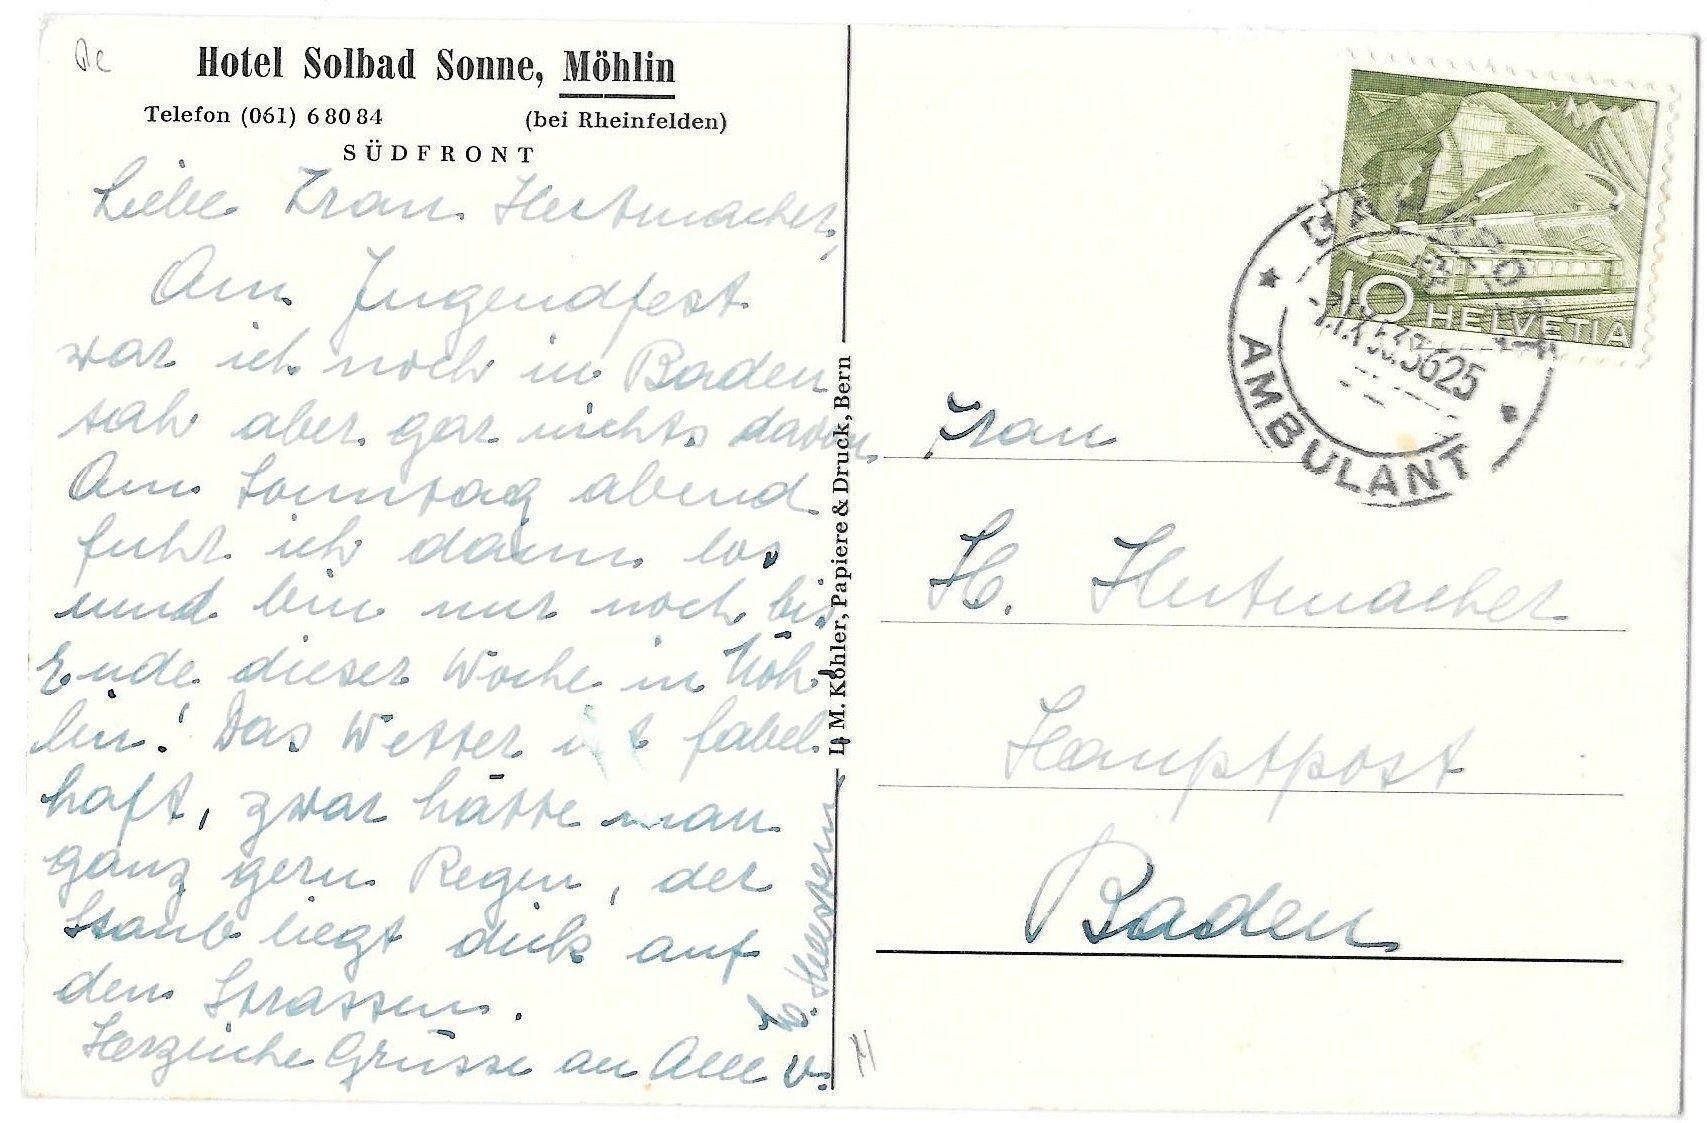 Hotel Solbad Sonne, Möhlin
Telefon (061) 6 80 84 (bei Rheinfelden)
SÜDFRONT
Liebe Frau Hutmacher,
Am Jugendfest
war ich noch in Baden
sah aber gar nichts davon
Am Sonntag abend
fuhr ich dann los
und bin nur noch bis
Ende dieser Woche in Möh
lin! Das Wetter ist fabel
haft, zwar hätte man
ganz gern Regen, der
Staub liegt dick auf
den Strassen.
Herzliche Grüsse an Alle v.
L. M. Köhler, Papiere & Druck, Bern
10 HELVETIA
3625
AMBULANT
Frau
H. Hutmacher
Hauptpost
Baden